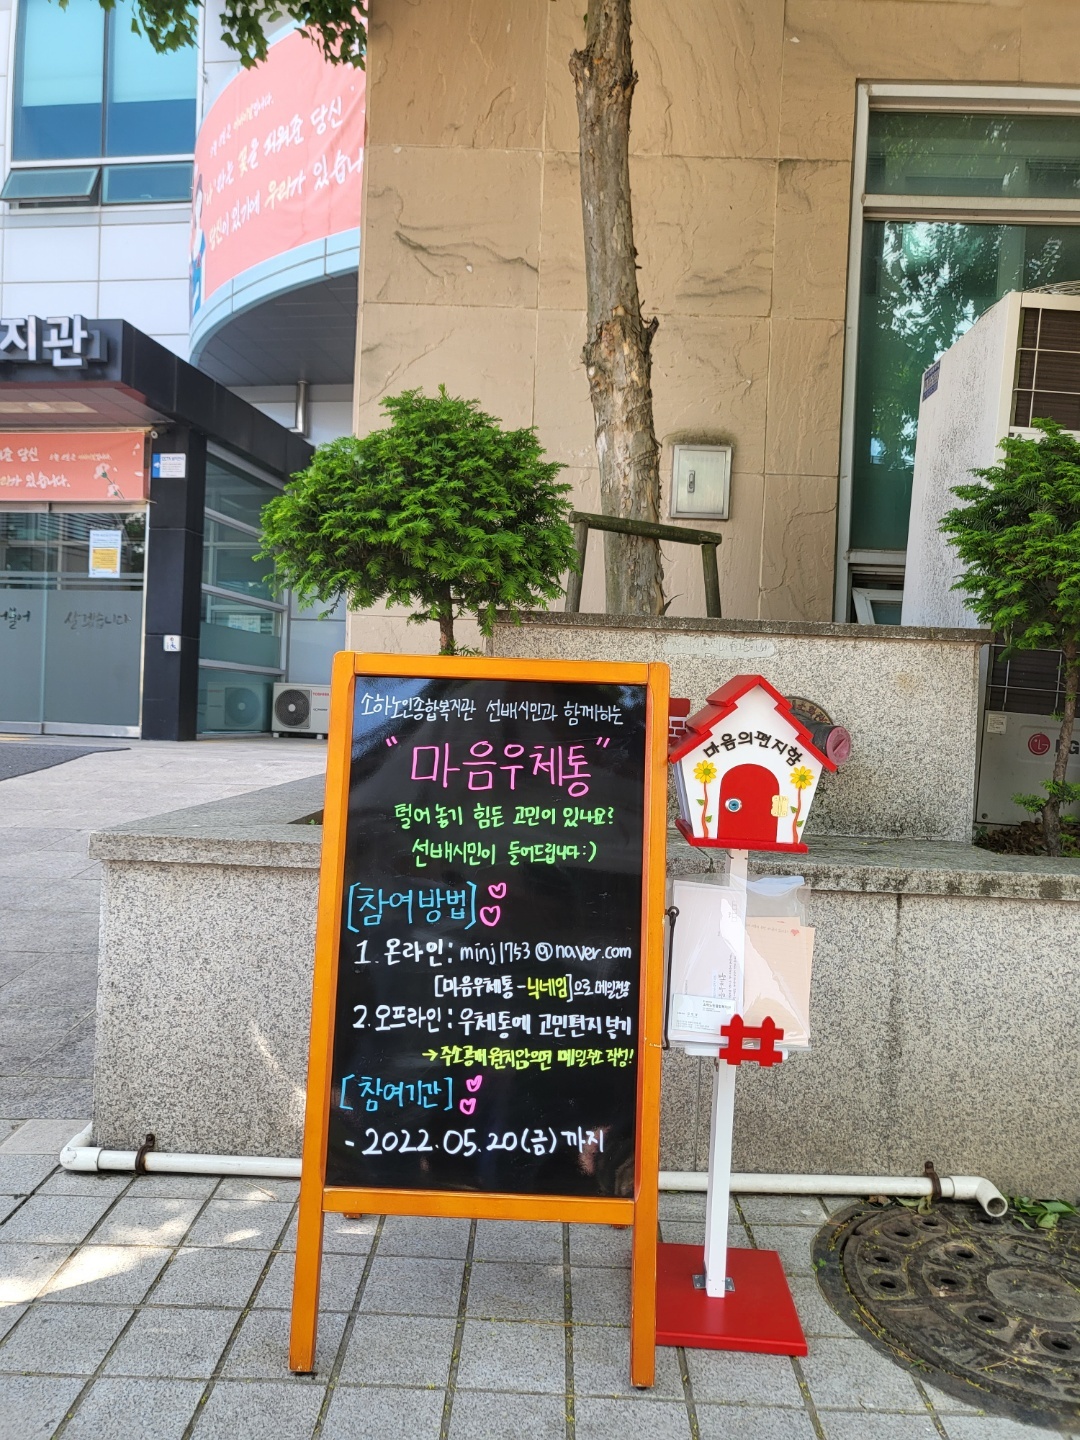 지관
꽃을 피워준 당신
당신이 있기에 우리가 있습니
준 당신
가 있습니다.
살겠습니다
소하노인종합복지관 선배시민과 함께하는
"마음우체통"
털어놓기 힘든 고민이 있나요?
선배시민이 들어드립니다:)
[참여방법]
1. 온라인: minj1753@naver.com
[마음우체통-닉네임]으로 메일전송
2. 오프라인: 우체통에 고민편지 넣기
→주소공개 원치않으면 메일주소 작성!
[참여기간]
- 2022.05.20(금)까지
마음의편지함
LG